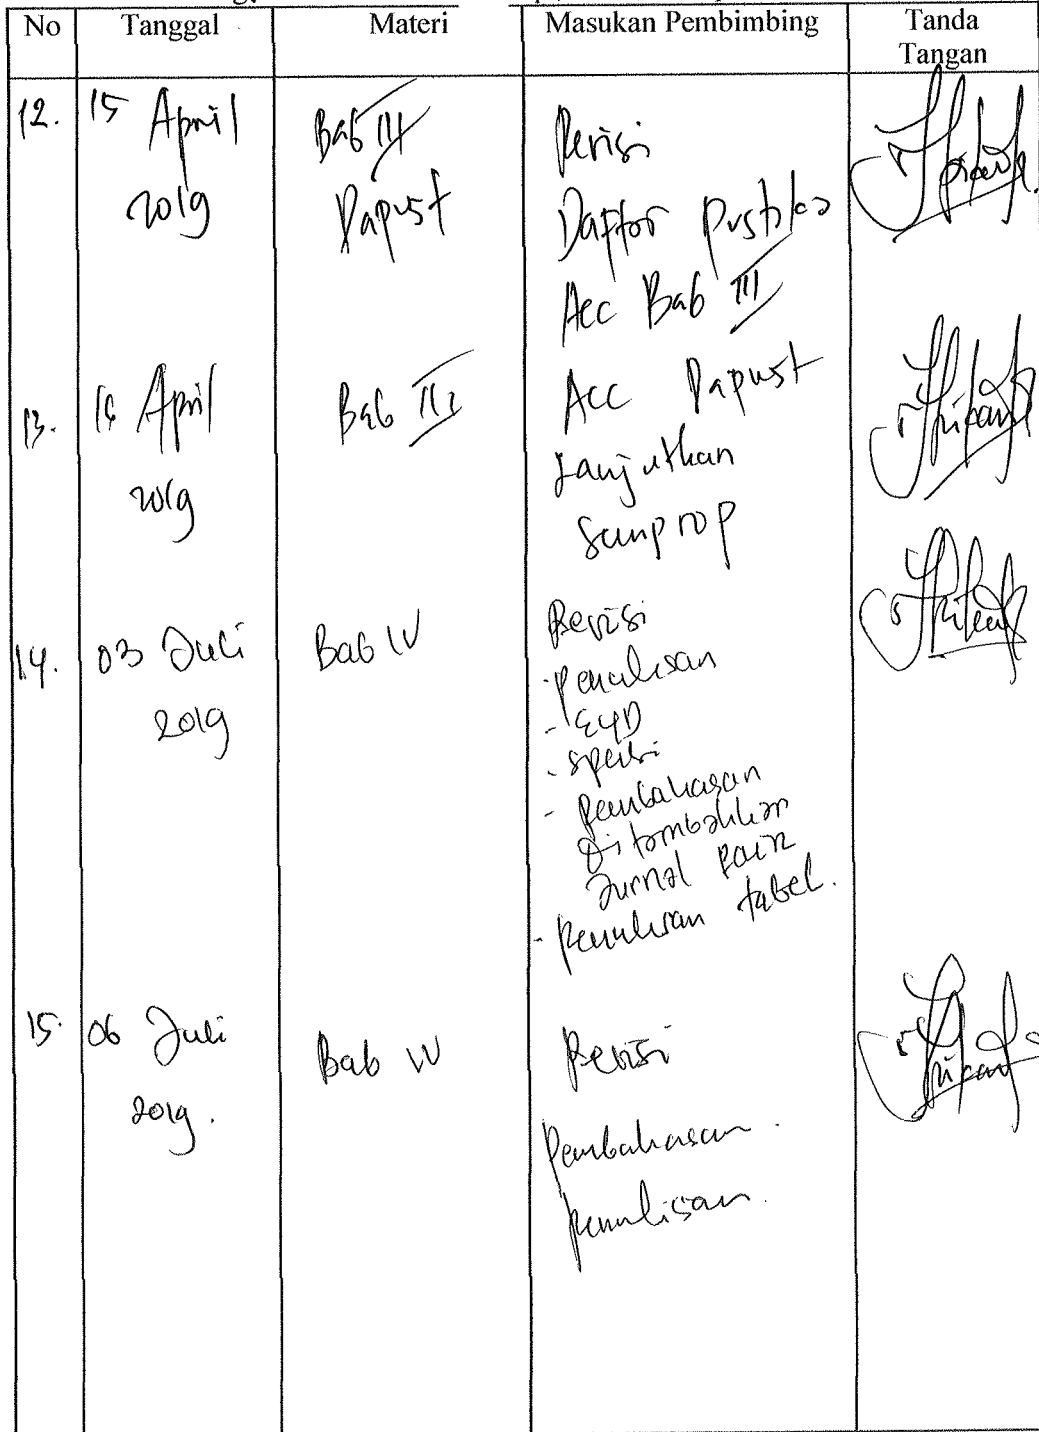 No Tanggal Materi Masukan Pembimbing Tanda Tangan
12. 15 April 2019
Bab III
Dapust
Revisi
Daftar Pustaka
Acc Bab III
13. 16 April 2019
Bab III
Acc Dapust
Lanjutkan
Semprop
14. 03 Juli 2019
Bab IV
Revisi
- penulisan
- EYD
- spasi
- pembahasan
Ditambahkan
Jurnal
- penulisan tabel.
15. 06 Juli 2019.
Bab IV
Revisi
Pembahasan.
penulisan.